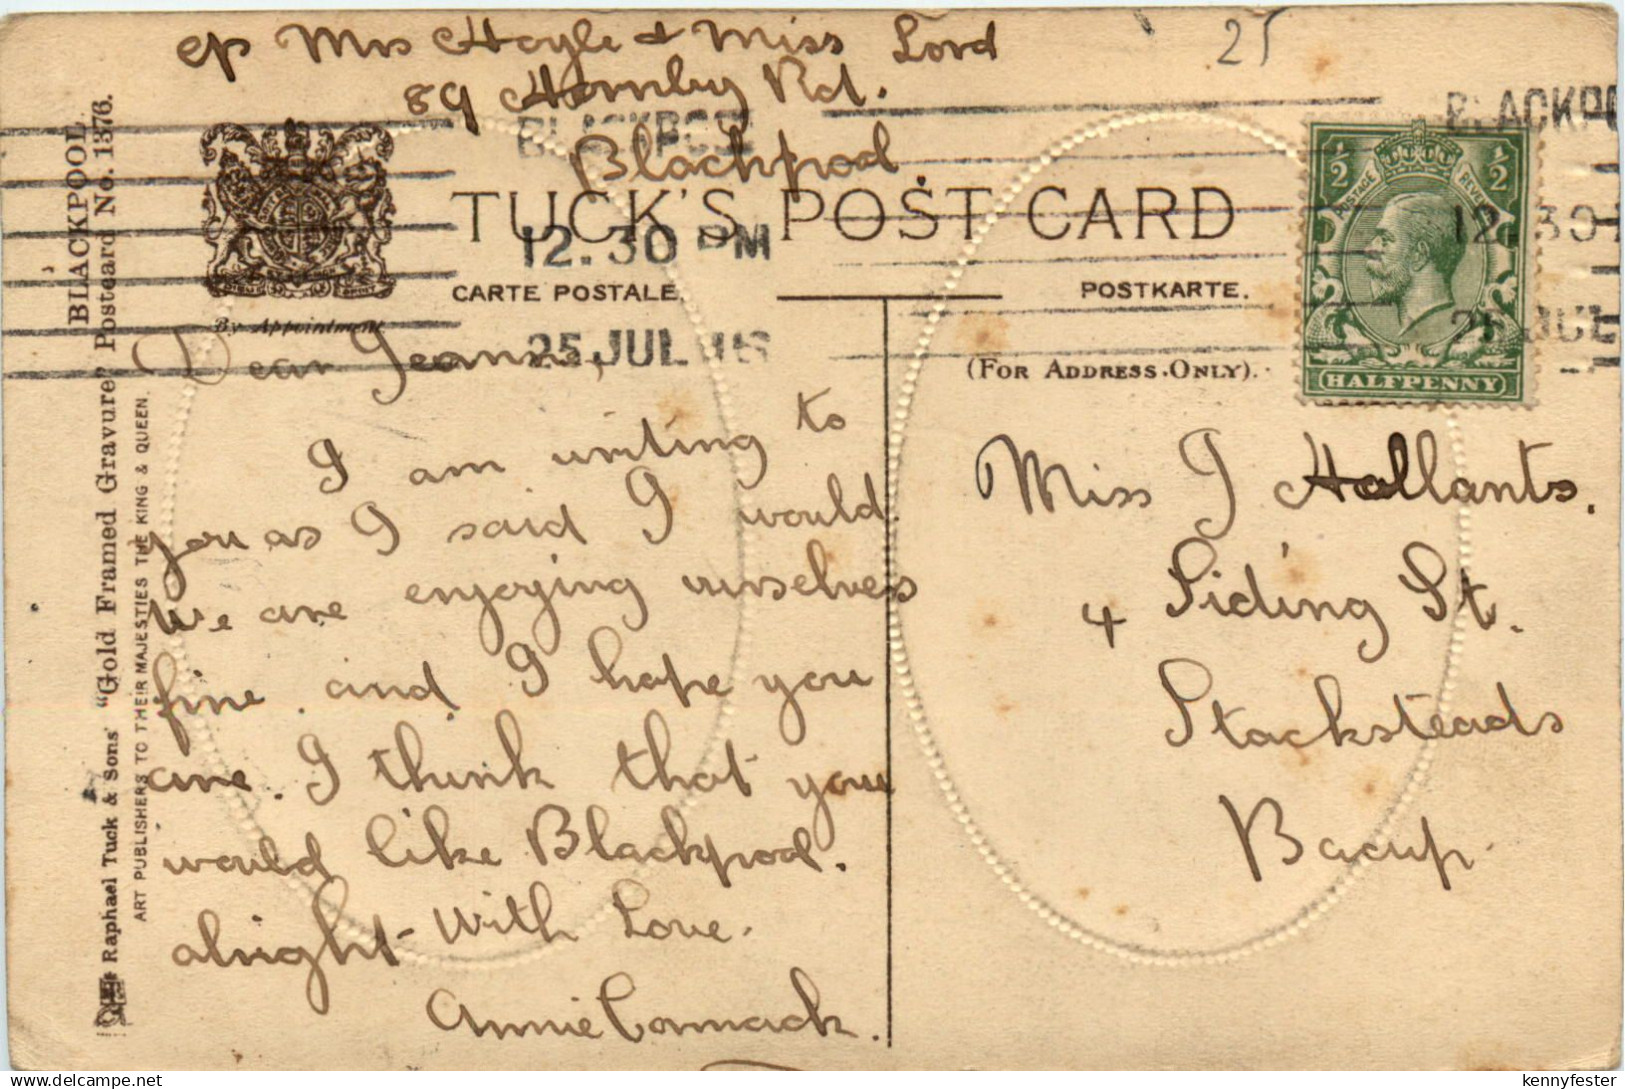 c/o Mrs Hoyle & Miss Lord
25
89 Hornby Rd.
Blackpool
BLACKPOOL
12.30 PM
25 JUL 16
TUCK'S POST CARD
CARTE POSTALE.
POSTKARTE.
By Appointment
(FOR ADDRESS ONLY).
POSTAGE REVENUE
1/2 1/2
HALFPENNY
BLACKPO
12.30
25 JUL
BLACKPOOL.
Raphael Tuck & Sons' "Gold Framed Gravure" Postcard No. 1376.
ART PUBLISHERS TO THEIR MAJESTIES THE KING & QUEEN.
Dear Jeannie,
I am writing to
you as I said I would.
We are enjoying ourselves
fine. and I hope you
are. I think that you
would like Blackpool.
alright- With Love.
Annie Cormack.
Miss J Hollants.
4 Siding St.
Stacksteads
Bacup.
kennyfester